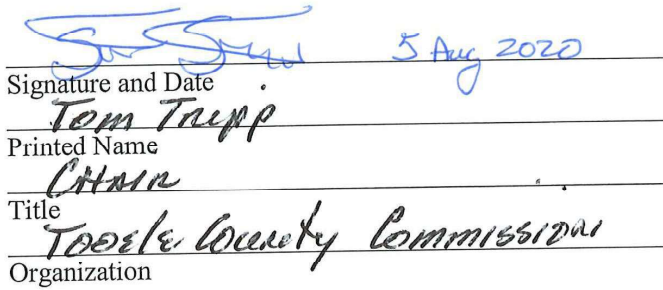 5 Aug 2020
Signature and Date
Tom Tripp
Printed Name
CHAIR
Title
Tooele County Commission
Organization